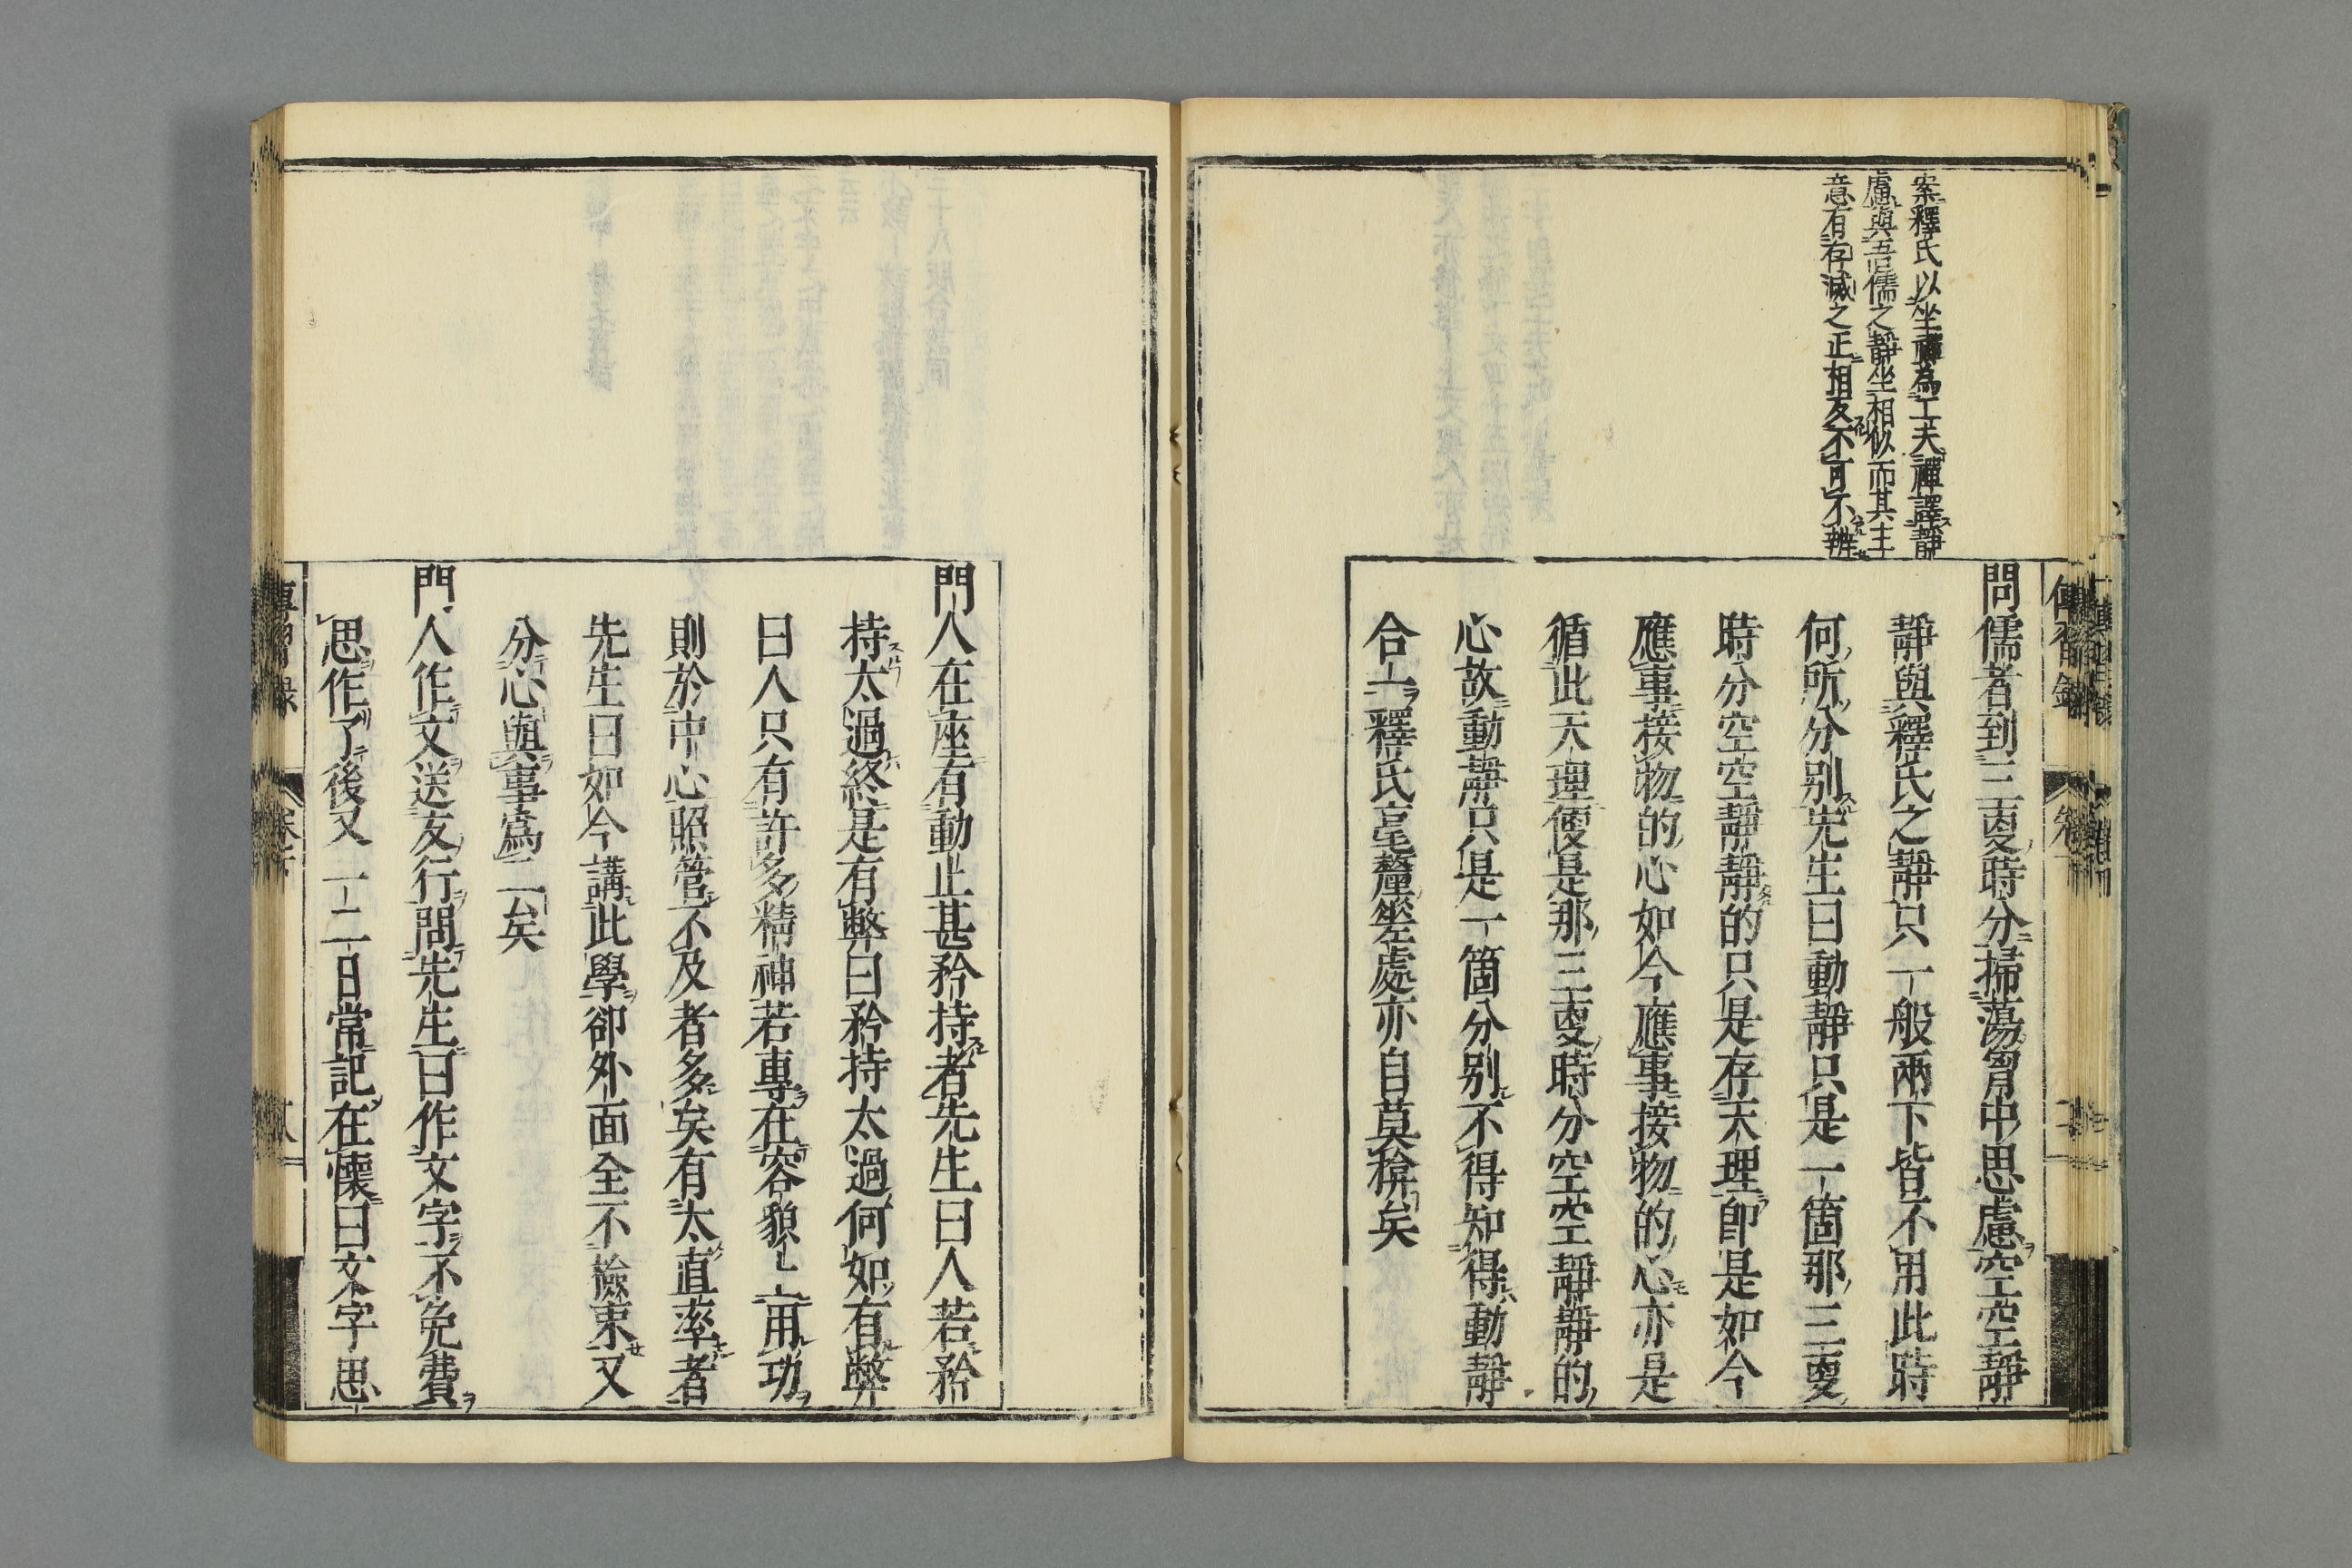 案釋氏以坐禪為工夫禪譯靜
慮與吾儒之靜坐相似而其主
意有存滅之正相反不可不辨
問儒者到三更時分掃蕩胷中思慮空空靜
靜與釋氏之靜只一般兩下皆不用此時
何所分別先生曰動靜只是一箇那三更
時分空空靜靜的只是存天理即是如今
應事接物的心如今應事接物的心亦是
循此天理便是那三更時分空空靜靜的
心故動靜只是一箇分別不得知得動靜
合一釋氏毫釐差處亦自莫揜矣
門人在座有動止甚矜持者先生曰人若矜
持太過終是有弊曰矜持太過何如有弊
曰人只有許多精神若專在容貌上用功
則於中心照管不及者多矣有太直率者
先生曰如今講此學卻外面全不檢束又
分心與事爲二矣
門人作文送友行問先生曰作文字不免費
思作了後又一二日常記在懷曰文字思